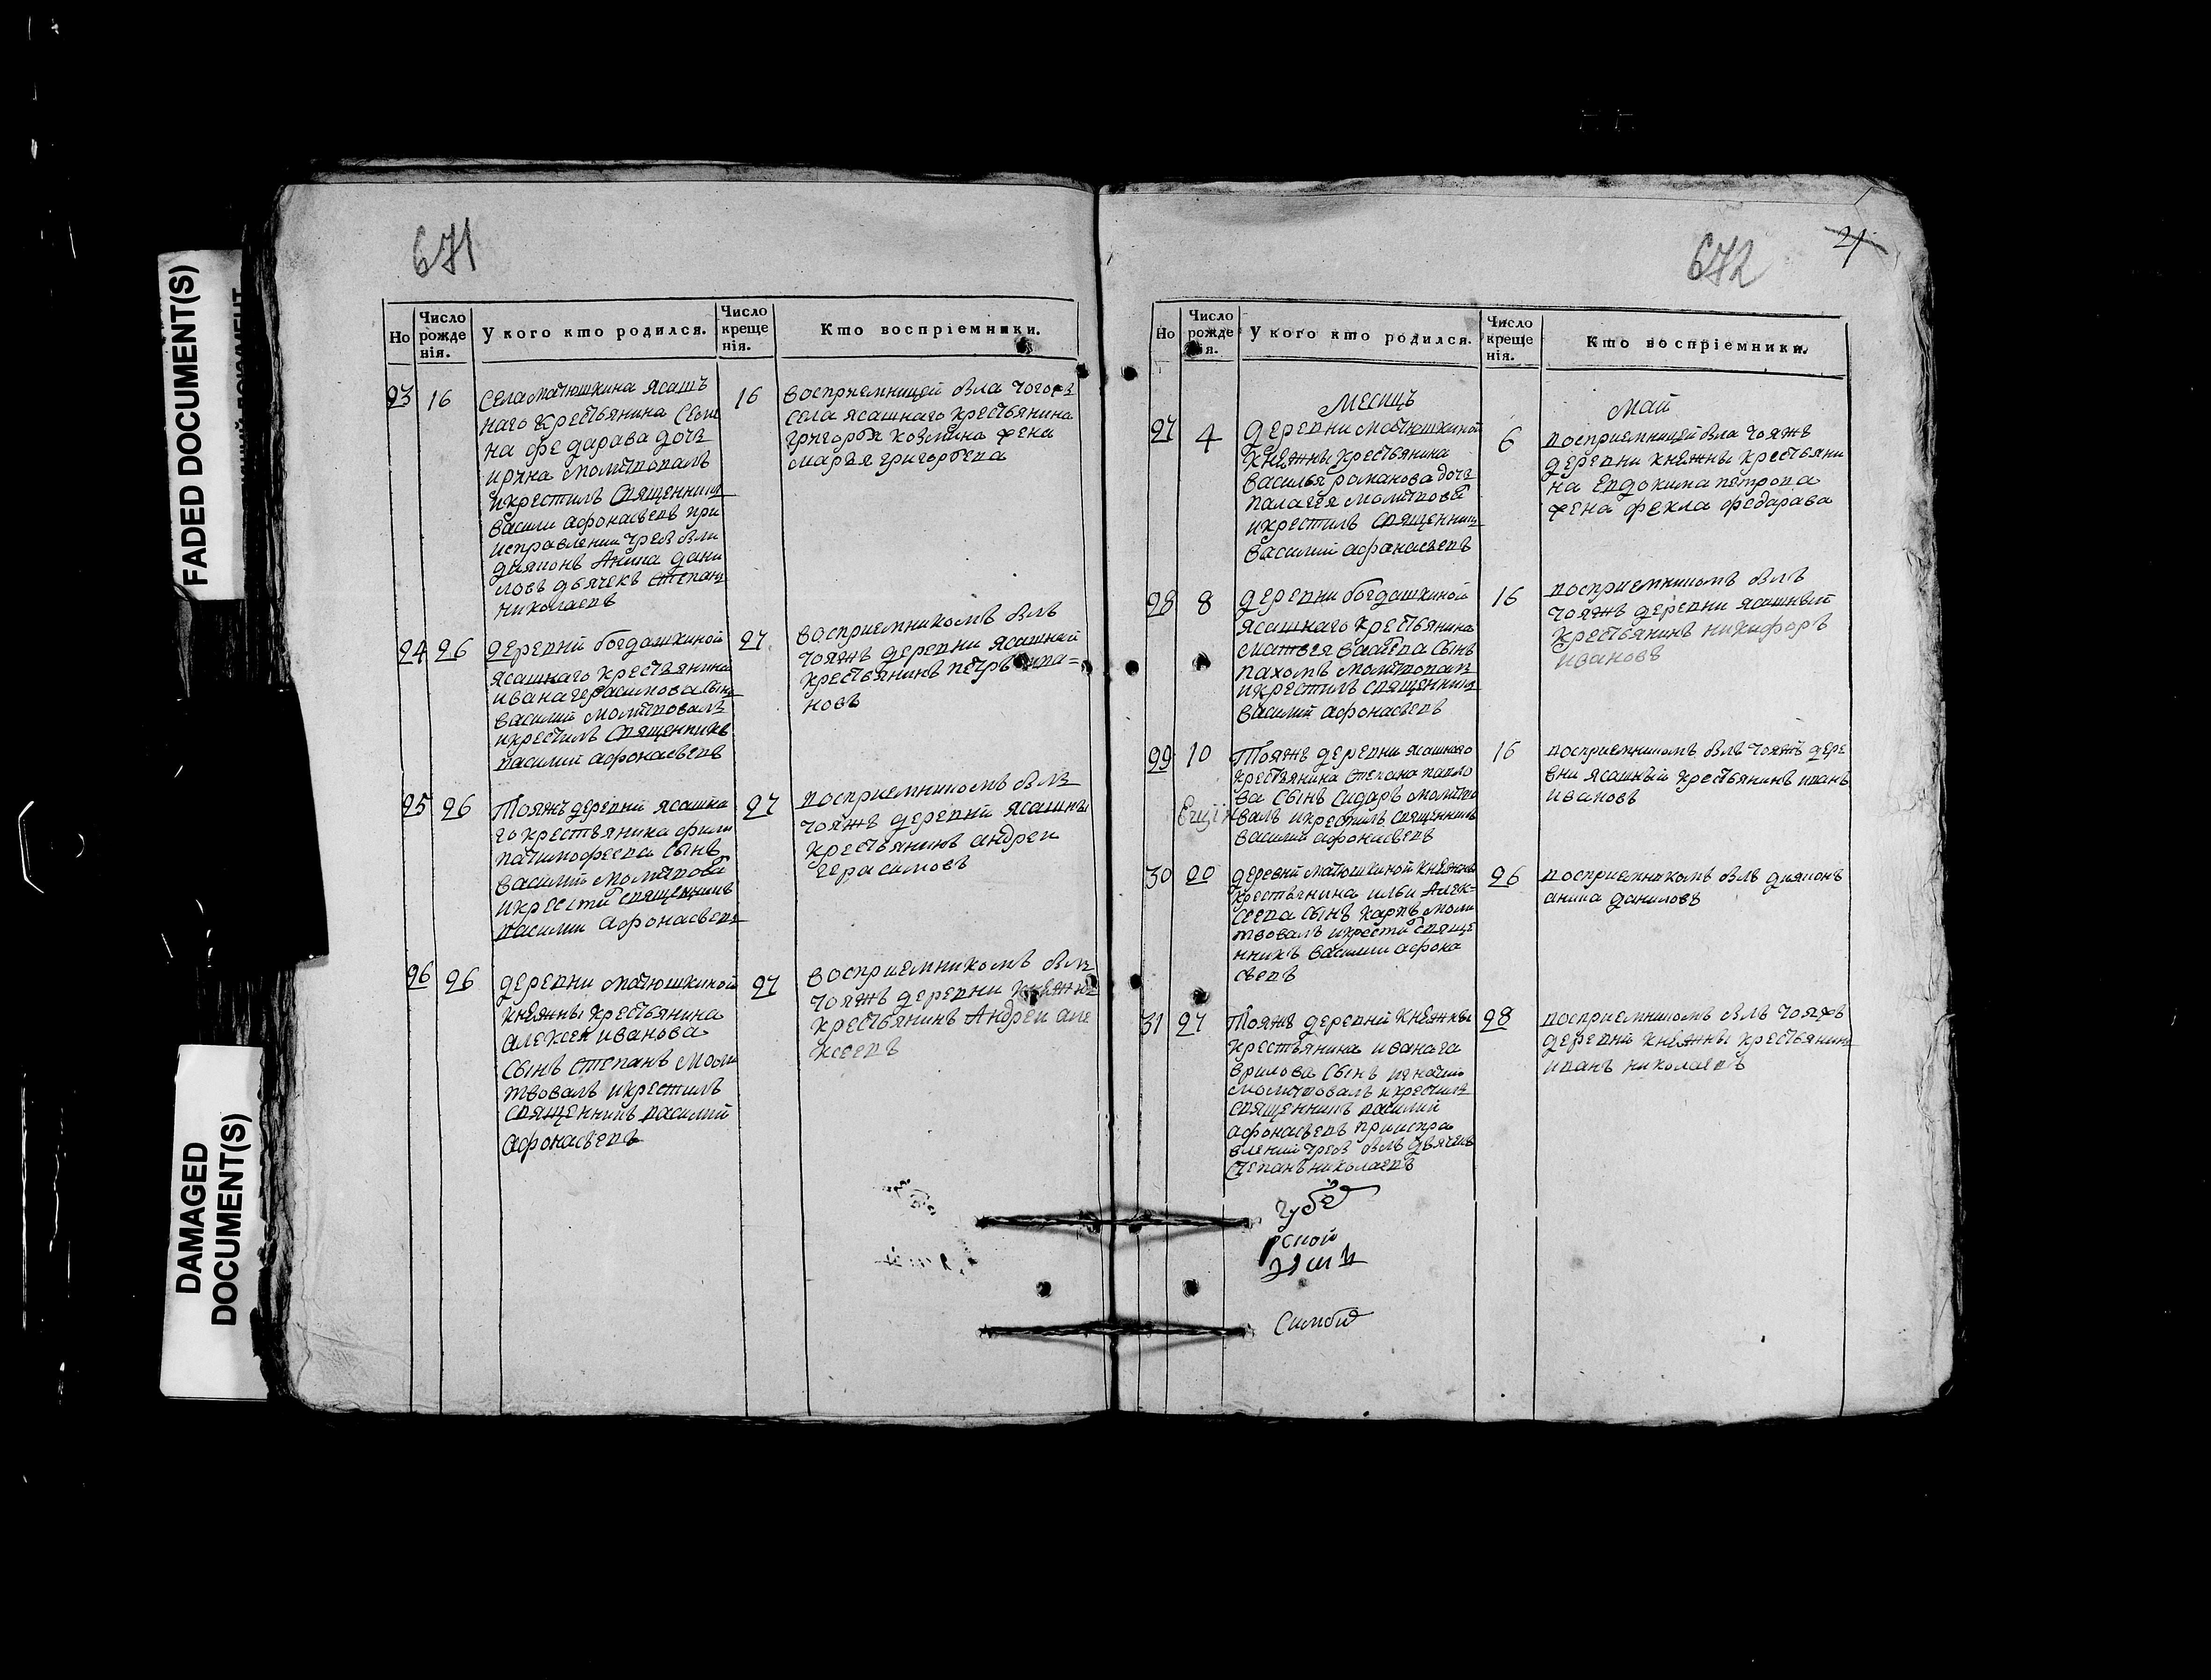 FADED DOCUMENT(S)
DAMAGED
DOCUMENT(S)
671
Но
Число
рожде
нія.
У кого кто родился.
Число
креще
нія.
Кто воспріемники.
23 16 села матюшкина ясашъ
наго крестьянина Семе
на федарава дочь
ирина молитвовалъ
икрестилъ священникъ
васили афонасьевъ при
исправлении треб были
дияконъ Аника дани
ловъ дьячекъ степанъ
николаевъ
16 восприемницей была тогожъ
села ясашнаго крестьянина
григорья козмина жена
марья григорьева
24 26 деревни богдашкиной
ясашнаго крестьянина
ивана герасимова сынъ
василий молитвовалъ
икрестилъ священникъ
василий афонасьевъ
27 восприемникомъ былъ
тояжъ деревни ясашней
крестьянинъ петръ ива=
новъ
25 26 Тояжъ деревни ясашна
го крестьянина фили
патимофеева сынъ
василий молитвова
икрести священникъ
василии афонасьевъ
27 восприемникомъ былъ
тояжъ деревни ясашны
крестьянинъ андреи
герасимовъ
26 26 деревни матюшкиной
княжны крестьянина
алексея иванова
сынъ степанъ моли
твовалъ икрестилъ
священникъ василий
афонасьевъ
27 восприемникомъ былъ
тояжъ деревни княжны
крестьянинъ Андреи але
ксеевъ
672
21
Но
Число
рожде
я.
У кого кто родился.
Число
креще
нія.
Кто воспріемники.
Месицъ Май
27 4 деревни матюшкиной
княжны крестьянина
василья раманова дочь
палагея молитвова
икрестилъ священникъ
василий афанасьевъ
6 восприемницей была тояжъ
деревни княжны крестьяни
на евдокима петрова
жена фекла федарава
28 8 деревни богдашкиной
ясашнаго крестьянина
матвея васильева сынъ
пахомъ молитвовалъ
икрестилъ священникъ
василий афонасьевъ
16 восприемникомъ былъ
тояжъ деревни ясашный
крестьянинъ никифоръ
ивановъ
29 10 Тояжъ деревни ясашнаго
крестьянина степана павло
ва сынъ сидаръ молитво
валъ икрестилъ священникъ
василий афонасьевъ
16 восприемникомъ былъ тояжъ дере
вни ясашный крестьянинъ иванъ
ивановъ
30 20 деревни матюшкиной княжны
крестьянина ильи Алек=
сеева сынъ карпъ моли
твовалъ икрести свяще
нникъ василии афона
сьевъ
26 восприемникомъ былъ дияконъ
аника даниловъ
31 27 Тояжъ деревни княжны
крестьянина ивана га
врилова сынъ игнатий
молитвовалъ икрестилъ
священникъ василий
афонасьевъ приисправ
влений треб былъ дьячекъ
степанъ николаевъ
28 восприемникомъ былъ тояжъ
деревни княжны крестьянинъ
иванъ николаевъ
губе
рской
Симби